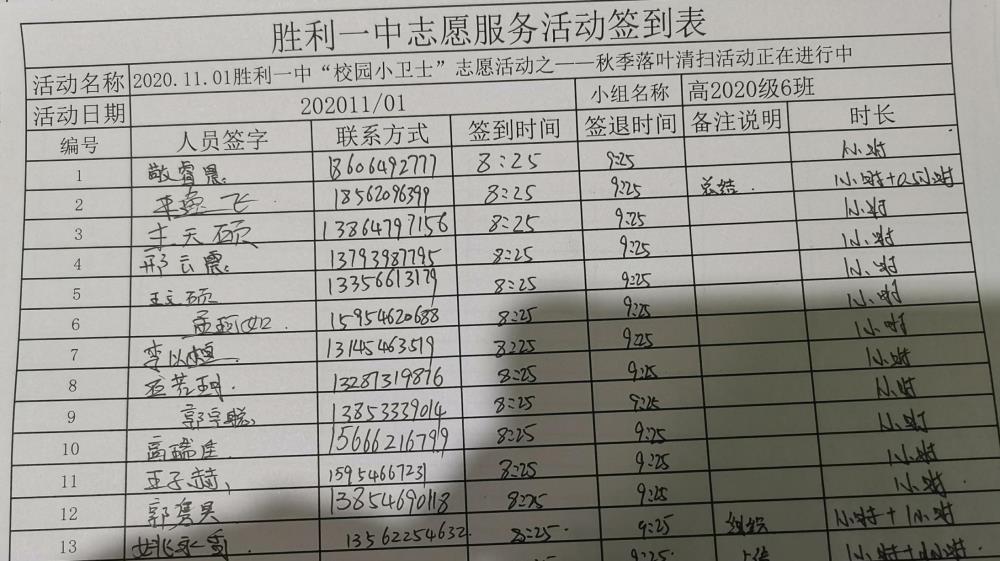 胜利一中志愿服务活动签到表
活动名称 2020.11.01胜利一中“校园小卫士”志愿活动之——秋季落叶清扫活动正在进行中
活动日期 202011/01 小组名称 高2020级6班
编号 人员签字 联系方式 签到时间 签退时间 备注说明 时长
1 敬睿晨 18606492777 8:25 9:25 1小时
2 飞 18562096399 8:25 9:25 总结 1小时+0.5小时
3 王天硕 13864797156 8:25 9:25 1小时
4 邢云震 13793987795 8:25 9:25 1小时
5 硕 13356613179 8:25 9:25 1小时
6 孟 15954620688 8:25 9:25 1小时
7 李以 13145463519 8:25 9:25 1小时
8 13287319876 8:25 9:25 1小时
9 郭宇聪 13853339014 8:25 9:25 1小时
10 高瑞佳 15666216799 8:25 9:25 1小时
11 王子赫 15954667231 8:25 9:25 1小时
12 郭隽昊 13854690118 8:25 9:25 1小时
13 姚 13562254632 8:25 9:25 组织 1小时+1小时
9:25